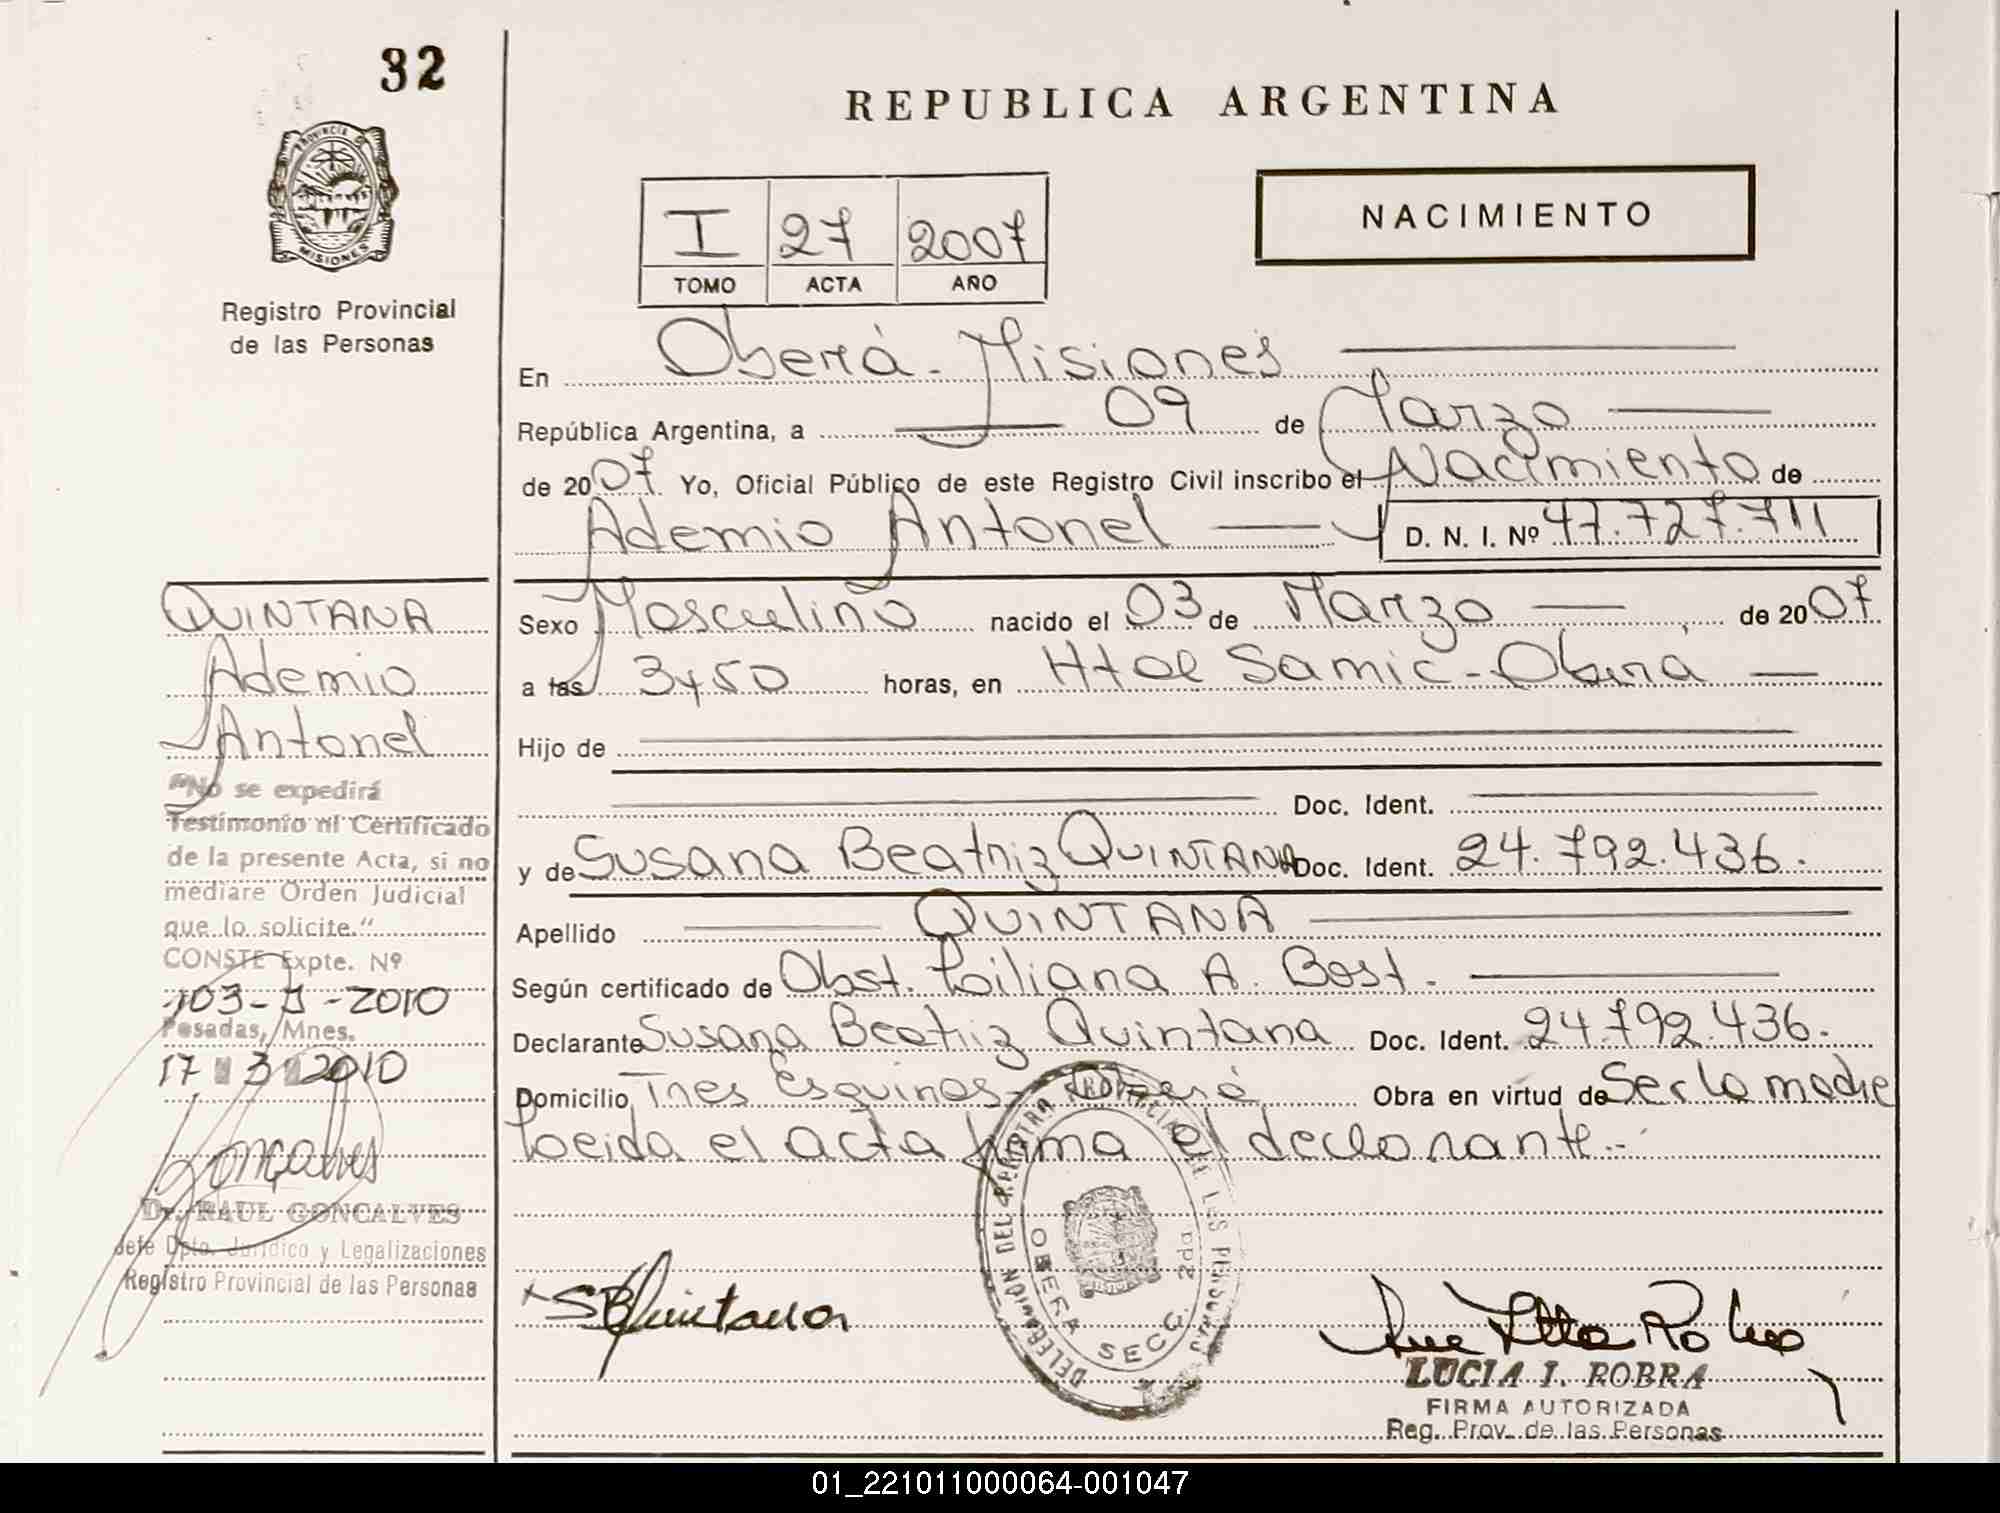 32
REPUBLICA ARGENTINA
PROVINCIA DE
MISIONES
Registro Provincial
de las Personas
I 27 2007
TOMO ACTA AÑO
NACIMIENTO
En Oberá - Misiones
República Argentina, a 09 de Marzo
de 2007 Yo, Oficial Público de este Registro Civil inscribo el Nacimiento de
Ademio Antonel D. N. I. Nº 47.727.711
Sexo Masculino nacido el 03 de Marzo de 2007
a las 3y50 horas, en Htal Samic - Oberá
Hijo de
Doc. Ident.
y de Susana Beatriz QUINTANA Doc. Ident. 24.792.436.
Apellido QUINTANA
Según certificado de Obst. Liliana A. Bost.
Declarante Susana Beatriz Quintana Doc. Ident. 24.792.436.
Domicilio Tres Esquinas - Oberá Obra en virtud de Ser la madre
Leida el acta firma el declarante.-
QUINTANA
Ademio
Antonel
"No se expedirá
Testimonio ni Certificado
de la presente Acta, si no
mediare Orden Judicial
que lo solicite."
CONSTE Expte. Nº
103-J-2010
Posadas, Mnes.
17 3 2010
Goncalves
Dr. RAUL GONCALVES
Jefe Dpto. Jurídico y Legalizaciones
Registro Provincial de las Personas
SBQuintana
DELEGACIÓN DEL REGISTRO PROVINCIAL DE LAS PERSONAS
OBERA SECC. 2da
LUCIA I. ROBRA
FIRMA AUTORIZADA
Reg. Prov. de las Personas
01_221011000064-001047